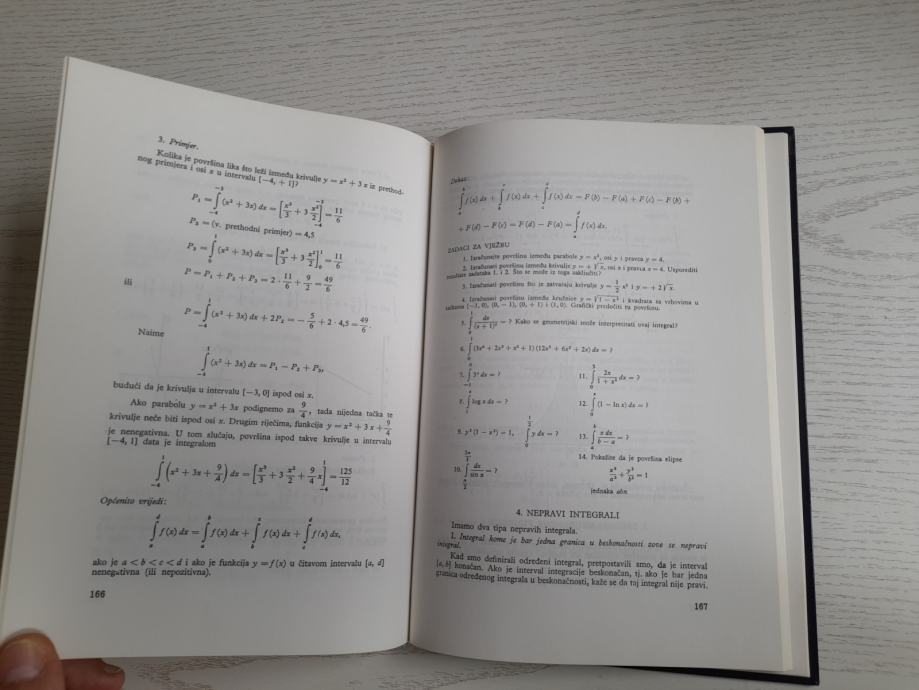 3. Primjer.
Kolika je površina lika što leži između krivulje y = x² + 3 x iz prethod-
nog primjera i osi x u intervalu [−4, + 1]?
P₁ = ∫₋₄⁻³ (x² + 3x) dx = [x³/3 + 3 x²/2]₋₄⁻³ = 11/6
P₂ = (v. prethodni primjer) = 4,5
P₃ = ∫₀¹ (x² + 3x) dx = [x³/3 + 3 x²/2]₀¹ = 11/6
P = P₁ + P₂ + P₃ = 2 · 11/6 + 9/2 = 49/6
ili
P = ∫₋₄¹ (x² + 3x) dx + 2P₂ = − 5/6 + 2 · 4,5 = 49/6.
Naime
∫₋₄¹ (x² + 3x) dx = P₁ − P₂ + P₃,
budući da je krivulja u intervalu [−3, 0] ispod osi x.
Ako parabolu y = x² + 3x podignemo za 9/4, tada nijedna tačka te
krivulje neće biti ispod osi x. Drugim riječima, funkcija y = x² + 3 x + 9/4
je nenegativna. U tom slučaju, površina ispod takve krivulje u intervalu
[−4, 1] data je integralom
∫₋₄¹ (x² + 3x + 9/4) dx = [x³/3 + 3 x²/2 + 9/4 x]₋₄¹ = 125/12
Općenito vrijedi:
∫ₐᵈ f (x) dx = ∫ₐᵇ f (x) dx + ∫ᵦᶜ f (x) dx + ∫ᶜᵈ f (x) dx,
ako je a < b < c < d i ako je funkcija y = f (x) u čitavom intervalu [a, d]
nenegativna (ili nepozitivna).
166
Dokaz:
∫ₐᵇ f (x) dx + ∫ᵦᶜ f (x) dx + ∫ᶜᵈ f (x) dx = F (b) − F (a) + F (c) − F (b) +
+ F (d) − F (c) = F (d) − F (a) = ∫ₐᵈ f (x) dx.
ZADACI ZA VJEŽBU
1. Izračunajte površinu između parabole y = x², osi y i pravca y = 4.
2. Izračunati površinu između krivulje y = + √x, osi x i pravca x = 4. Usporediti
rezultate zadataka 1. i 2. Što se može iz toga zaključiti?
3. Izračunati površinu što je zatvaraju krivulje y = 1/2 x² i y = + 2√x.
4. Izračunati površinu između kružnice y = √1 − x² i kvadrata sa vrhovima u
tačkama (−1, 0), (0, − 1), (0, + 1) i (1, 0). Grafički predočiti tu površinu.
5. ∫₀¹ dx/(x + 1)² = ? Kako se geometrijski može interpretirati ovaj integral?
6. ∫₀¹ (3x⁴ + 2x³ + x² + 1) (12x³ + 6x² + 2x) dx = ?
7. ∫₋₁¹ 3ˣ dx = ?
11. ∫₀³ 2x/1 + x² dx = ?
8. ∫ log x dx = ?
12. ∫ (1 − ln x) dx = ?
9. y² (1 − x²) = 1, ∫₀^(1/2) y dx = ?
13. ∫ x dx/b − a = ?
14. Pokažite da je površina elipse
10. ∫ dx/sin x = ?
x²/a² + y²/b² = 1
jednaka abπ
4. NEPRAVI INTEGRALI
Imamo dva tipa nepravih integrala.
I. Integral kome je bar jedna granica u beskonačnosti zove se nepravi
integral.
Kad smo definirali određeni integral, pretpostavili smo, da je interval
[a, b] konačan. Ako je interval integracije beskonačan, tj. ako je bar jedna
granica određenog integrala u beskonačnosti, kaže se da taj integral nije pravi.
167